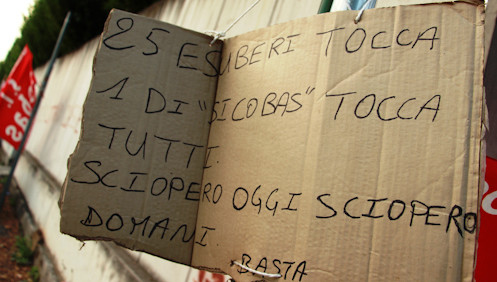 25 ESUBERI TOCCA
1 DI "SICOBAS" TOCCA
TUTTI.
SCIOPERO OGGI SCIOPERO
DOMANI.
BASTA